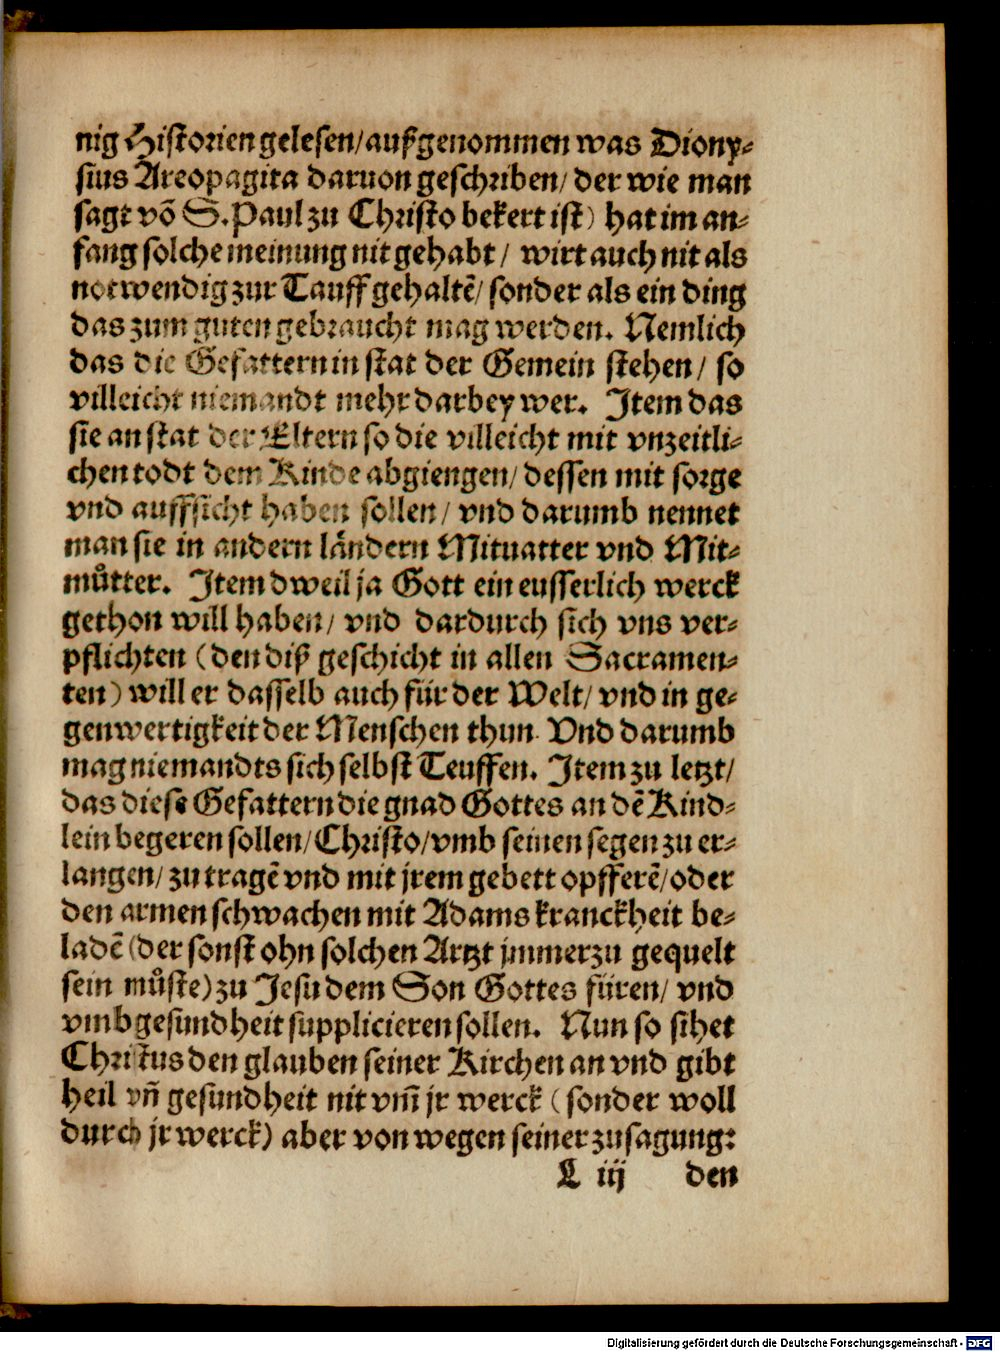 nig Historien gelesen/außgenommen was Diony⸗
sius Areopagita daruon geschriben/ der wie man
sagt võ S. Paul zu Christo bekert ist) hat im an⸗
fang solche meinung nit gehabt/ wirt auch nit als
notwendig zur Tauff gehaltẽ/ sonder als ein ding
das zum guten gebraucht mag werden. Nemlich
das die Gefattern in stat der Gemein stehen/ so
villeicht niemandt mehr darbey wer. Item das
sie an stat der Eltern so die villeicht mit vnzeitli⸗
chen todt dem Kinde abgiengen/ dessen mit sorge
vnd auffsicht haben sollen/ vnd darumb nennet
man sie in andern lȧndern Mituatter vnd Mit⸗
můtter. Item dweil ja Gott ein eusserlich werck
gethon will haben/ vnd dardurch sich vns ver⸗
pflichten (den diß geschicht in allen Sacramen⸗
ten) will er dasselb auch für der Welt/ vnd in ge⸗
genwertigkeit der Menschen thun. Vnd darumb
mag niemandts sich selbst Teuffen. Item zu letzt/
das diese Gefattern die gnad Gottes an dẽ Kind⸗
lein begeren sollen/ Christo/ vmb seinen segen zu er⸗
langen/ zu tragẽ vnd mit jrem gebett opfferẽ/ oder
den armen schwachen mit Adams kranckheit be⸗
ladẽ (der sonst ohn solchen Artzt jmmerzu gequelt
sein můste) zu Jesu dem Son Gottes füren/ vnd
vmb gesundheit supplicieren sollen. Nun so sihet
Christus den glauben seiner Kirchen an vnd gibt
heil vñ gesundheit nit vm̃ jr werck (sonder woll
durch jr werck) aber von wegen seiner zusagung:
L iij den
Digitalisierung gefördert durch die Deutsche Forschungsgemeinschaft - DFG